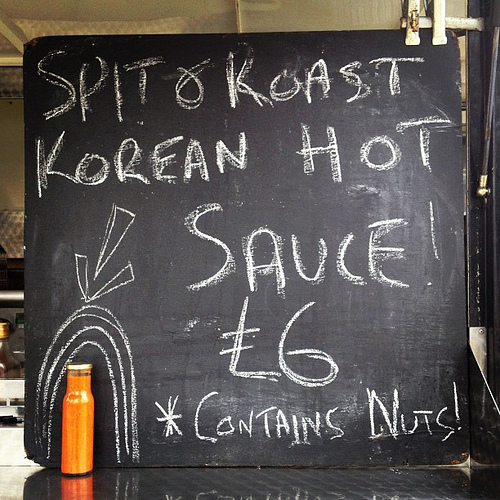 SPIT & ROAST
KOREAN HOT
SAUCE!
£6
*CONTAINS NUTS!